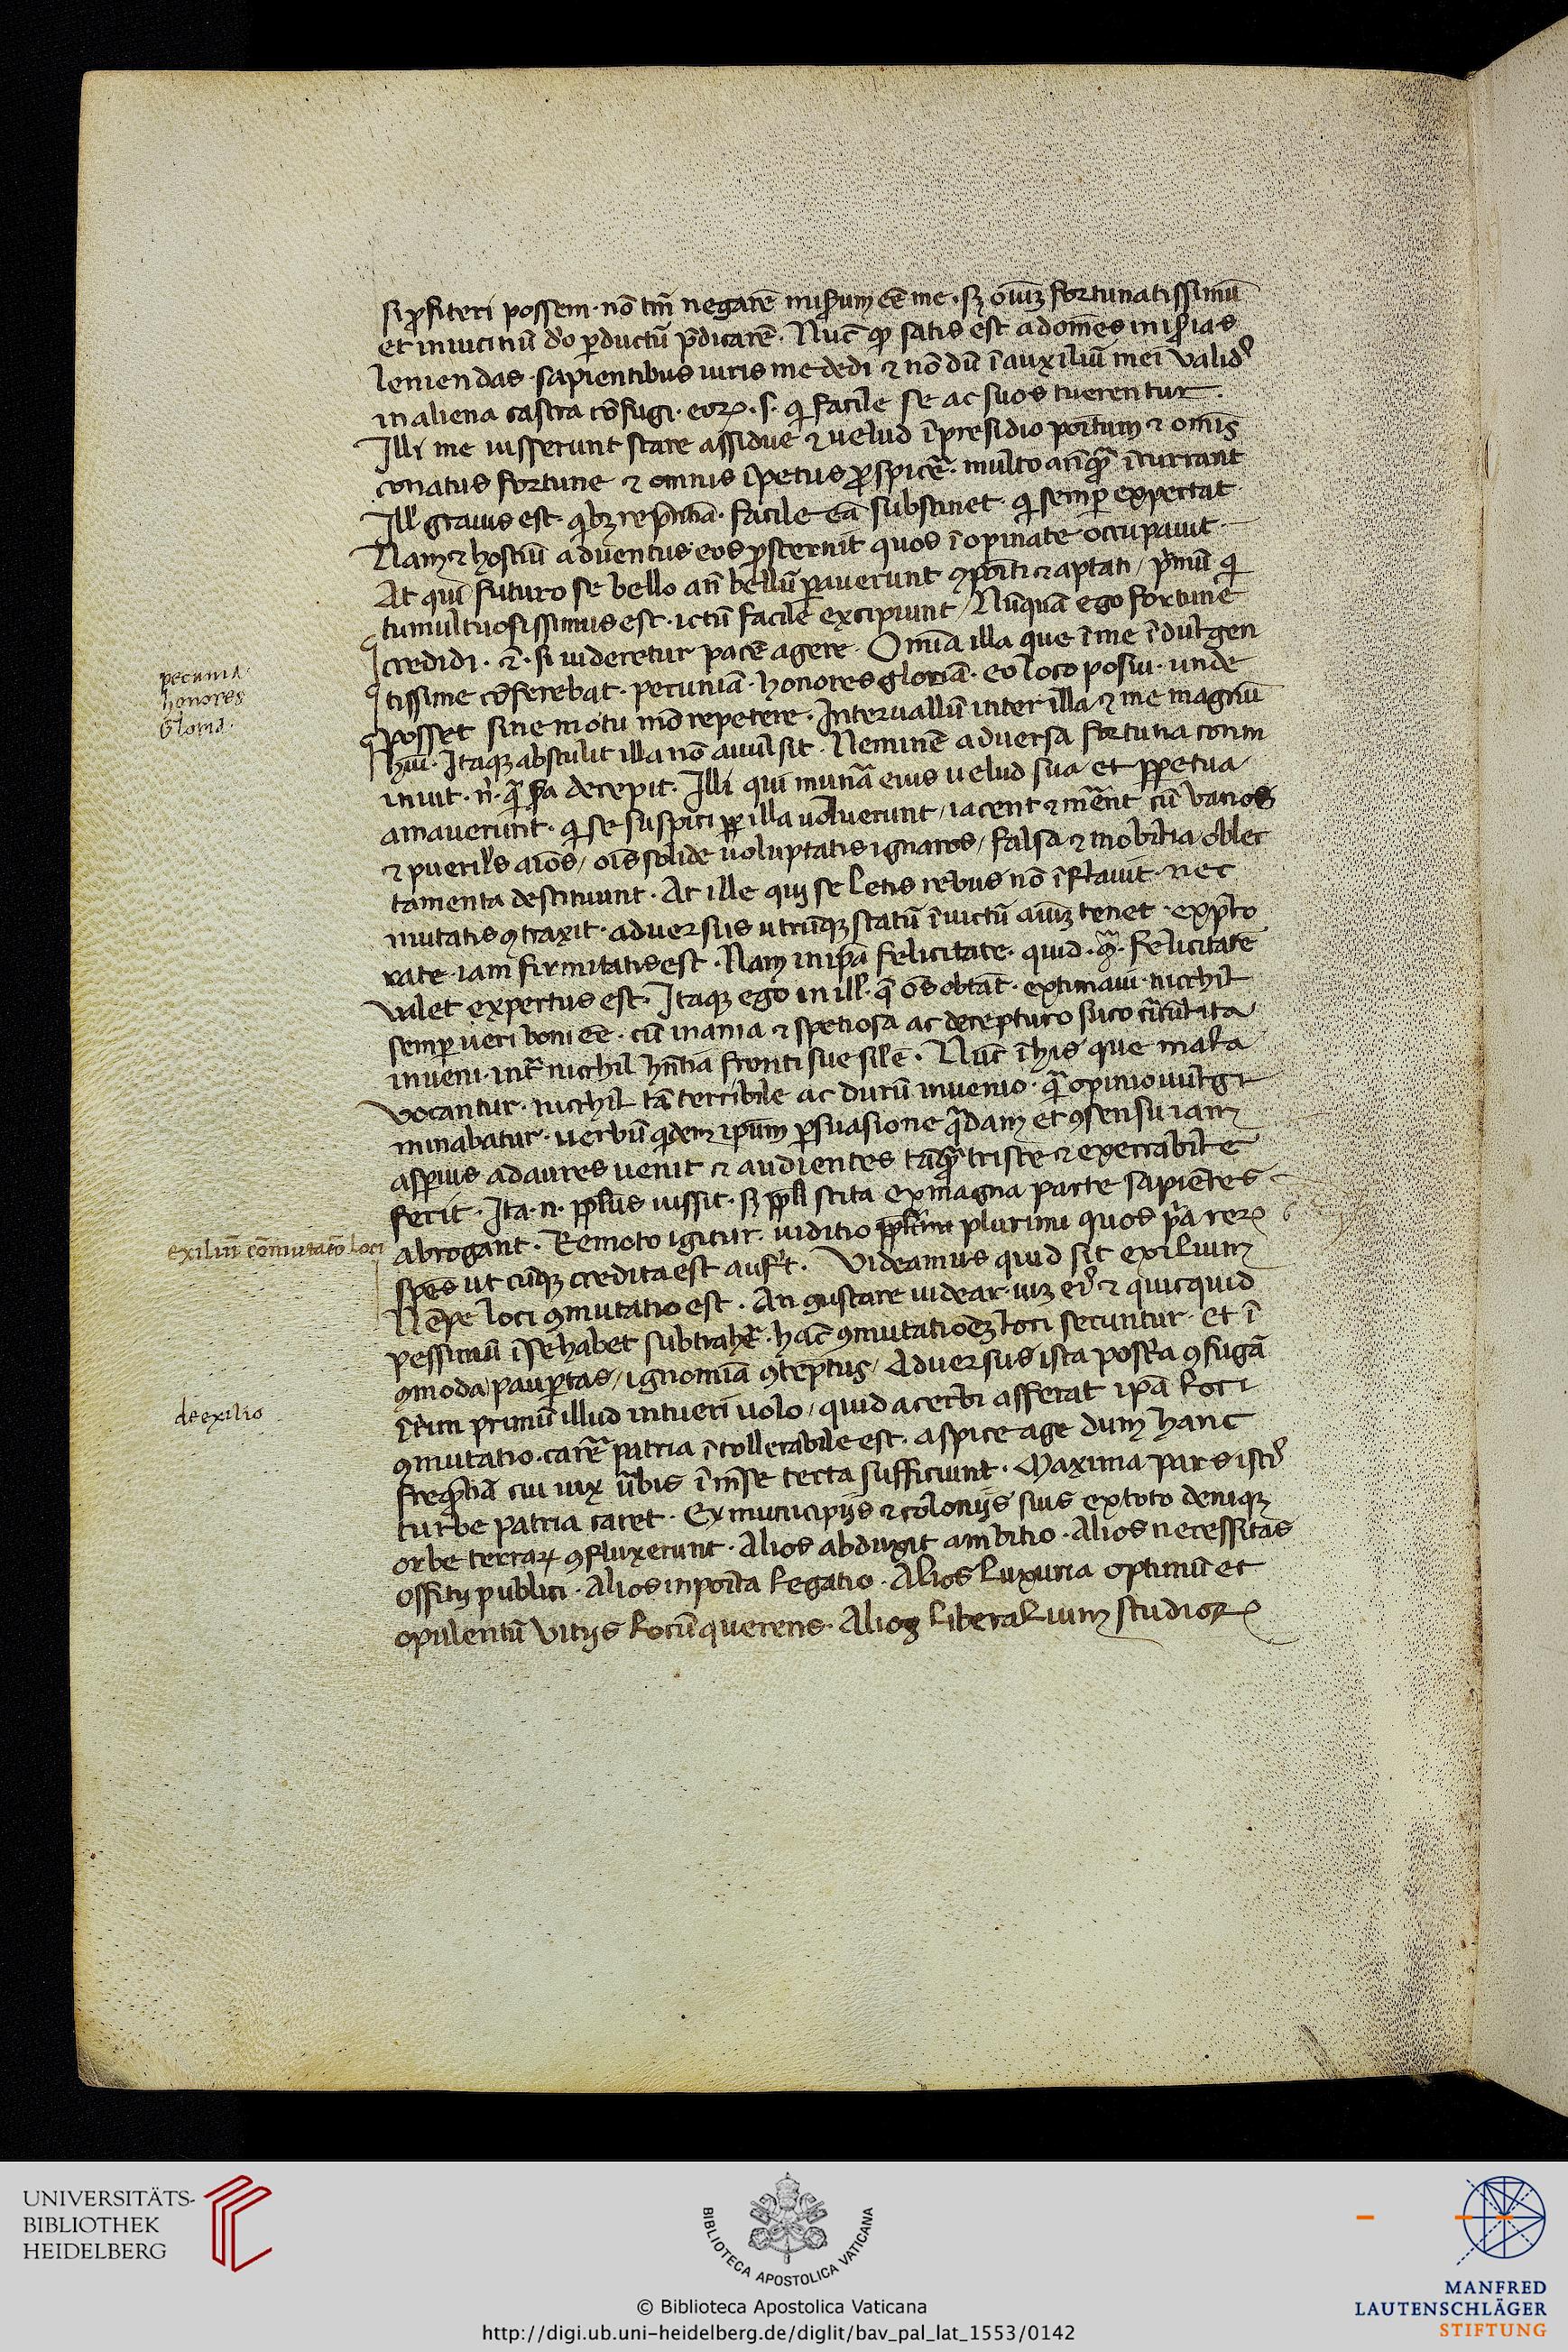 si ꝓfiteri possem · nō tm̄ negarē mis̄um eē me · sꝫ oīuꝫ fortunatissimū
et in uicinū dō ꝑductū p̄dicarē · Nūc qꝫ satis est ad omēs mis̄ias
leniendas · sapientibus uiris me dedi ⁊ nōdū ī auxiliū mei valid᾽
in aliena castra cōfugi · eoꝝ · s · qi facile se ac suos tuerentur ·
Illi me iusserunt stare assidue ⁊ uelud ī presidio poītum ⁊ omīs
conatus fortune ⁊ omnis īpetus ꝓspicē · multo an̄ qᷓ īcurrant
Ill̄ grauis est qibꝫ repn̄tīa · facile eā substinet · qi semꝑ expectat ·
Nam ⁊ hostiū aduentus eos ꝓsternit quos īopinate occupauit ·
At qui futuro se bello an̄ bellū ꝑauerunt ꝯpoīti ⁊ aptati / pⁱmū qi
tumultuosissimus est · ictū facile excipiunt / Nūquā ego fortune
credidi · ē · si uideretur pacē agere · Omīa illa que ī me īdulgen
tissime cōferebat · pecuniā · honores gloriā · eo loco posui · unde
posset sine motu mō repetere · Interuallū inter illa ⁊ me magnū
hui · Itaqꝫ abstulit illa nō auulsit · Neminē aduersa fortuna comm
inuit · n̄ · qᷓ s̄a decepit · Illi qui munᷓa eius uelud sua et ꝑpetua
amauerunt · qi se suspici ꝓpꝑ illa uoluerunt / iacent ⁊ mr̄ent cū vanos
⁊ pueril̄s aīos / oīs solide uoluptatis ignaros / falsa ⁊ mobilia oblec
tamenta destituunt · At ille qui se letis rebus nō īflauit · nec
mutatis ꝯtraxit · aduersus utrūqꝫ statū īuictū aīuꝫ tenet · explo
rate iam firmitatis est · Nam in ip̄a felicitate · quid · ꝯᷓ · felicitatē
valet expertus est · Itaqꝫ ego in ill̄ · q̄ oēs obtāt · extimaui nicchil
semꝑ ueri boni eē · cū inania ⁊ spetiosa ac decepturo suco cⁱcūlita
inueni · intᷓ nicchil hn̄tia fronti sue sil̄e · Nūc ī his que mala
vocantur · nicchil tā terribile ac durū inuenio · qᷓ opinio uulgi
minabatur · uerbū qⁱdem ip̄um ꝑsuasione qᷓdam et ꝯsensu iam
asꝑius ad aures uenit ⁊ audientes tāqᷓ triste ⁊ execrabile
ferit · Ita · n · ppl̄us iussit · sꝫ ppl̄i scita ex magna parte sapiētes
abrogant · Remoto igitur iuditio plurimi quos pⁱa reꝝ
spēs ut cūqꝫ credita est aufᵗt · Videamus quid sit exilium
Nēpe loci ꝯmutatio est · An gustare uidear uiꝫ eiᷣ ⁊ quicquid
pessimū ī se habet subtrahē · hāc ꝯmutationeꝫ loci secuntur et ī
ꝯmoda paupertas / ignomīa ꝯteptus / Aduersus ista postᷓa ꝯfugā
īt̄im primū illud intueri uolo / quid acerbi afferat ip̄a loci
ꝯmutatio · carē patria ītollerabile est · aspice age dum hanc
freqn̄tiā cui uix ūbis īmēse tecta sufficiunt · Maxima pars isti᾽
turbe patria caret · Ex municipijs ⁊ colonijs suis ex toto deniqꝫ
orbe terraꝝ ꝯfluxerunt · Alios abduxit ambitio · Alios necessitas
offitij publici · Alios inpoīta legatio · Alios luxuria optimū et
opulentū vitijs locū querens · Alios liberalium studioꝝ
pecunia ·
honores
Gloria ·
exiliū cōmutatō loci
de exilio
UNIVERSITÄTS-
BIBLIOTHEK
HEIDELBERG
BIBLIOTECA APOSTOLICA VATICANA
© Biblioteca Apostolica Vaticana
http://digi.ub.uni-heidelberg.de/diglit/bav_pal_lat_1553/0142
MANFRED
LAUTENSCHLÄGER
STIFTUNG